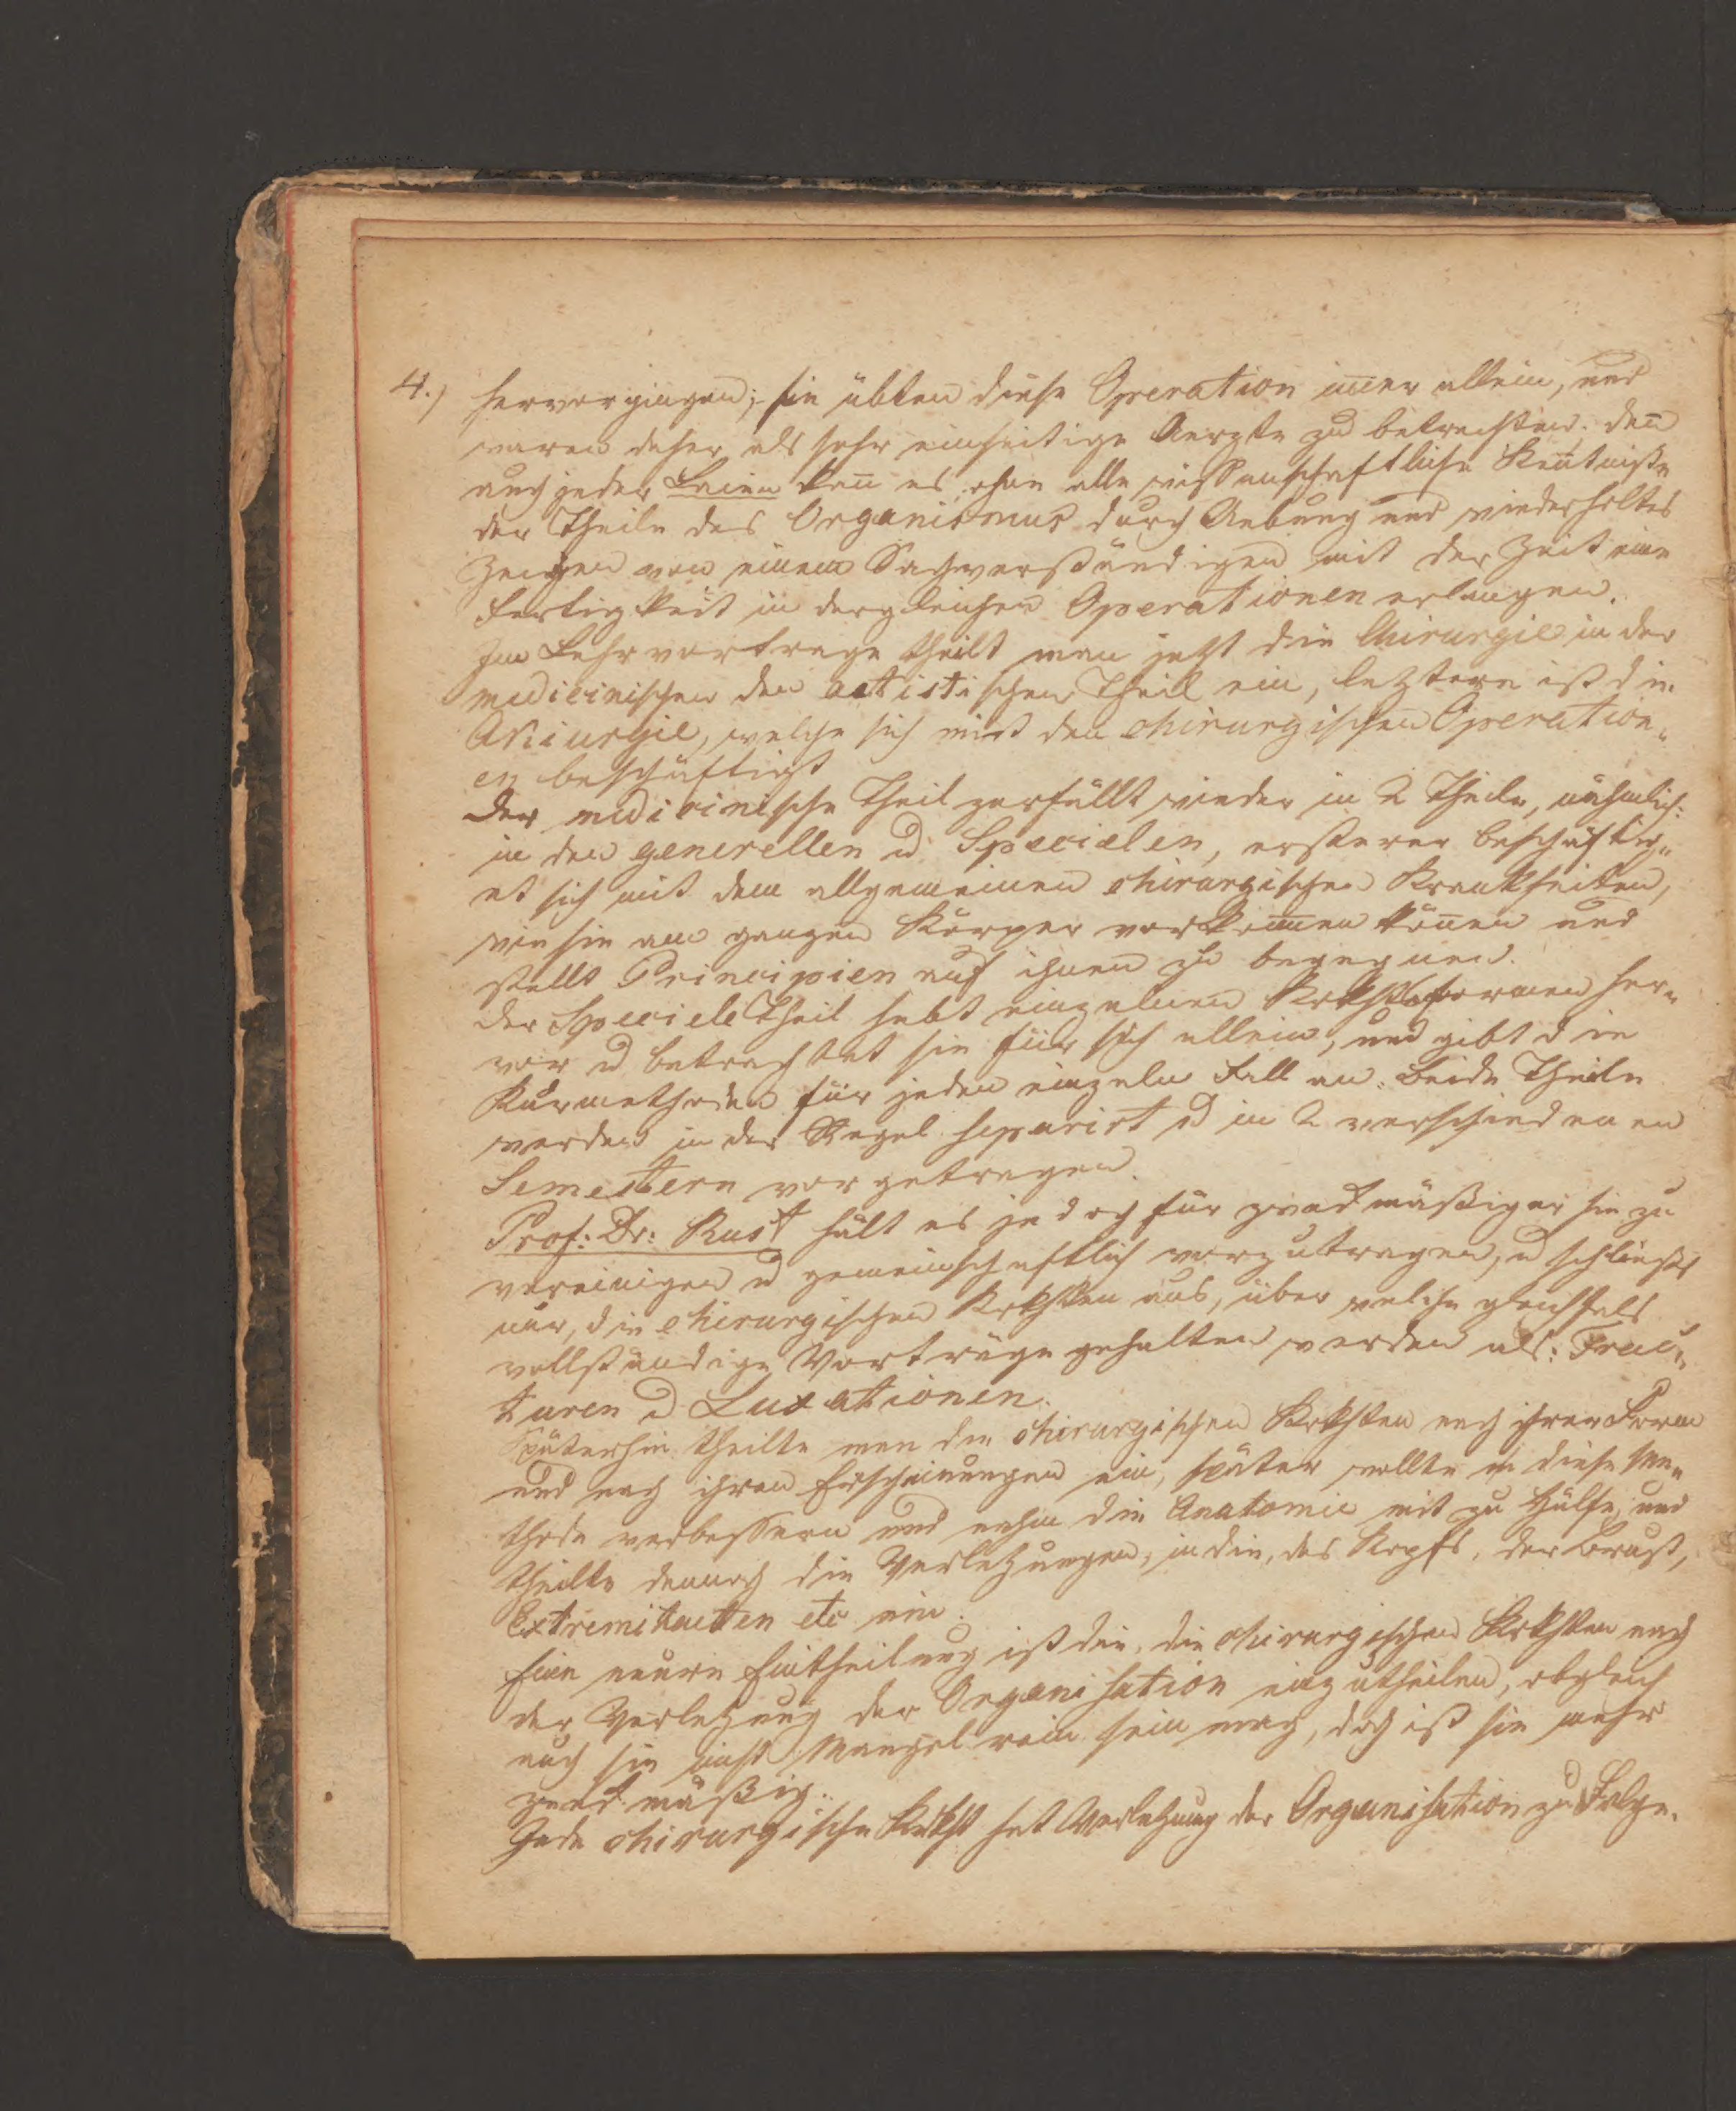 4.) hervorgingen; sie übten diese Operation im̄er allein, und
waren daher als sehr einseitige Aerzte zu betrachten; den̄
auch jeder Laien kan̄ es, ohne alle wissenschaftliche Ken̄tniße
der Theile des Organismus durch Uebung und wiederholtes
Zeigen von einem Sachverständigen mit der Zeit eine
Fertigkeit in dergleichen Operationen erlangen.
Im Lehrvortrage theilt man jetzt die Chirurgie in der
medicinischen den artistischen Theil ein, leztere ist die
Akiurgie, welche sich mit den chirurgischen Operation„
en beschäftigt
Der medicinische Theil zerfällt wieder in 2 Theile, nähmlich:
in den generellen u Specielen, ersterer beschäftig„
et sich mit dem allgemeinen chirurgischen Krankheiten,
wie sie am ganzen Körper vorkom̄en kön̄en und
stellt Principien auf ihnen zu begegnen.
Der Speciele Theil hebt einzelnen Krkhtsformen her„
vor u betrachtet sie für sich allein, und gibt die
Kurmethoden für jeden einzeln Fall an. Beide Theile
werden in der Regel separirt u in 2 verschiedenen
Semestern vorgetragen.
Prof: Dr: Rust hält es jedoch für zweckmäßiger sie zu
vereinigen u gemeinschaftlich vorzutragen, u schließt
nur, die chirurgischen Krkhten aus, über welche gleichfals
vollständige Vorträge gehalten werden als: Frac„
turen u Luxationen.
Späterhin theilte man die chirurgischen Krkhten nach ihrer Form
und nach ihren Erscheinungen ein, später wollte m diese Me„
thode verbessern und nahm die Anatomie mit zu Hülfe, und
theilte darnach die Verletzungen, in die, des Kopfs, der Brust,
Extremitaeten etc ein.
Eine neuere Eintheilung ist die, die chirurgischen Krkhten nach
der Verletzung der Organisation einzutheilen, obgleich
auch sie nicht Mangel rein sein mag, doch ist sie mehr
zweckmäßig.
Jede chirurgische Krkht hat Verletzung der Organisation zu Folge.